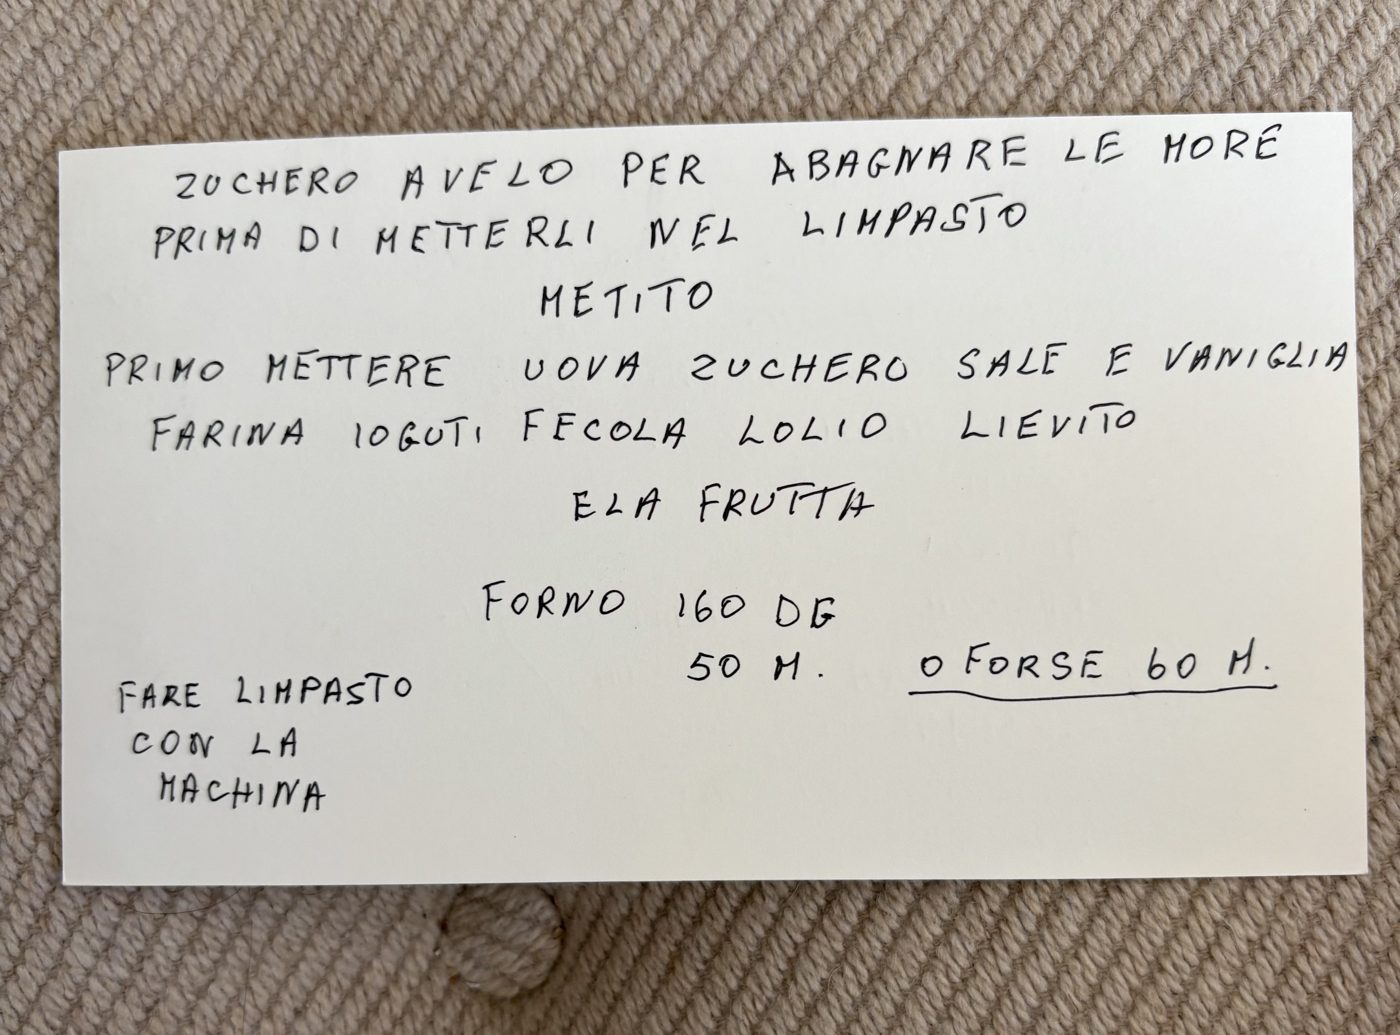 ZUCHERO AVELO PER ABAGNARE LE MORE
PRIMA DI METTERLI NEL LIMPASTO
METITO
PRIMO METTERE UOVA ZUCHERO SALE E VANIGLIA
FARINA IOGUTI FECOLA LOLIO LIEVITO
ELA FRUTTA
FORNO 160 DG
50 M. O FORSE 60 M.
FARE LIMPASTO
CON LA
MACHINA